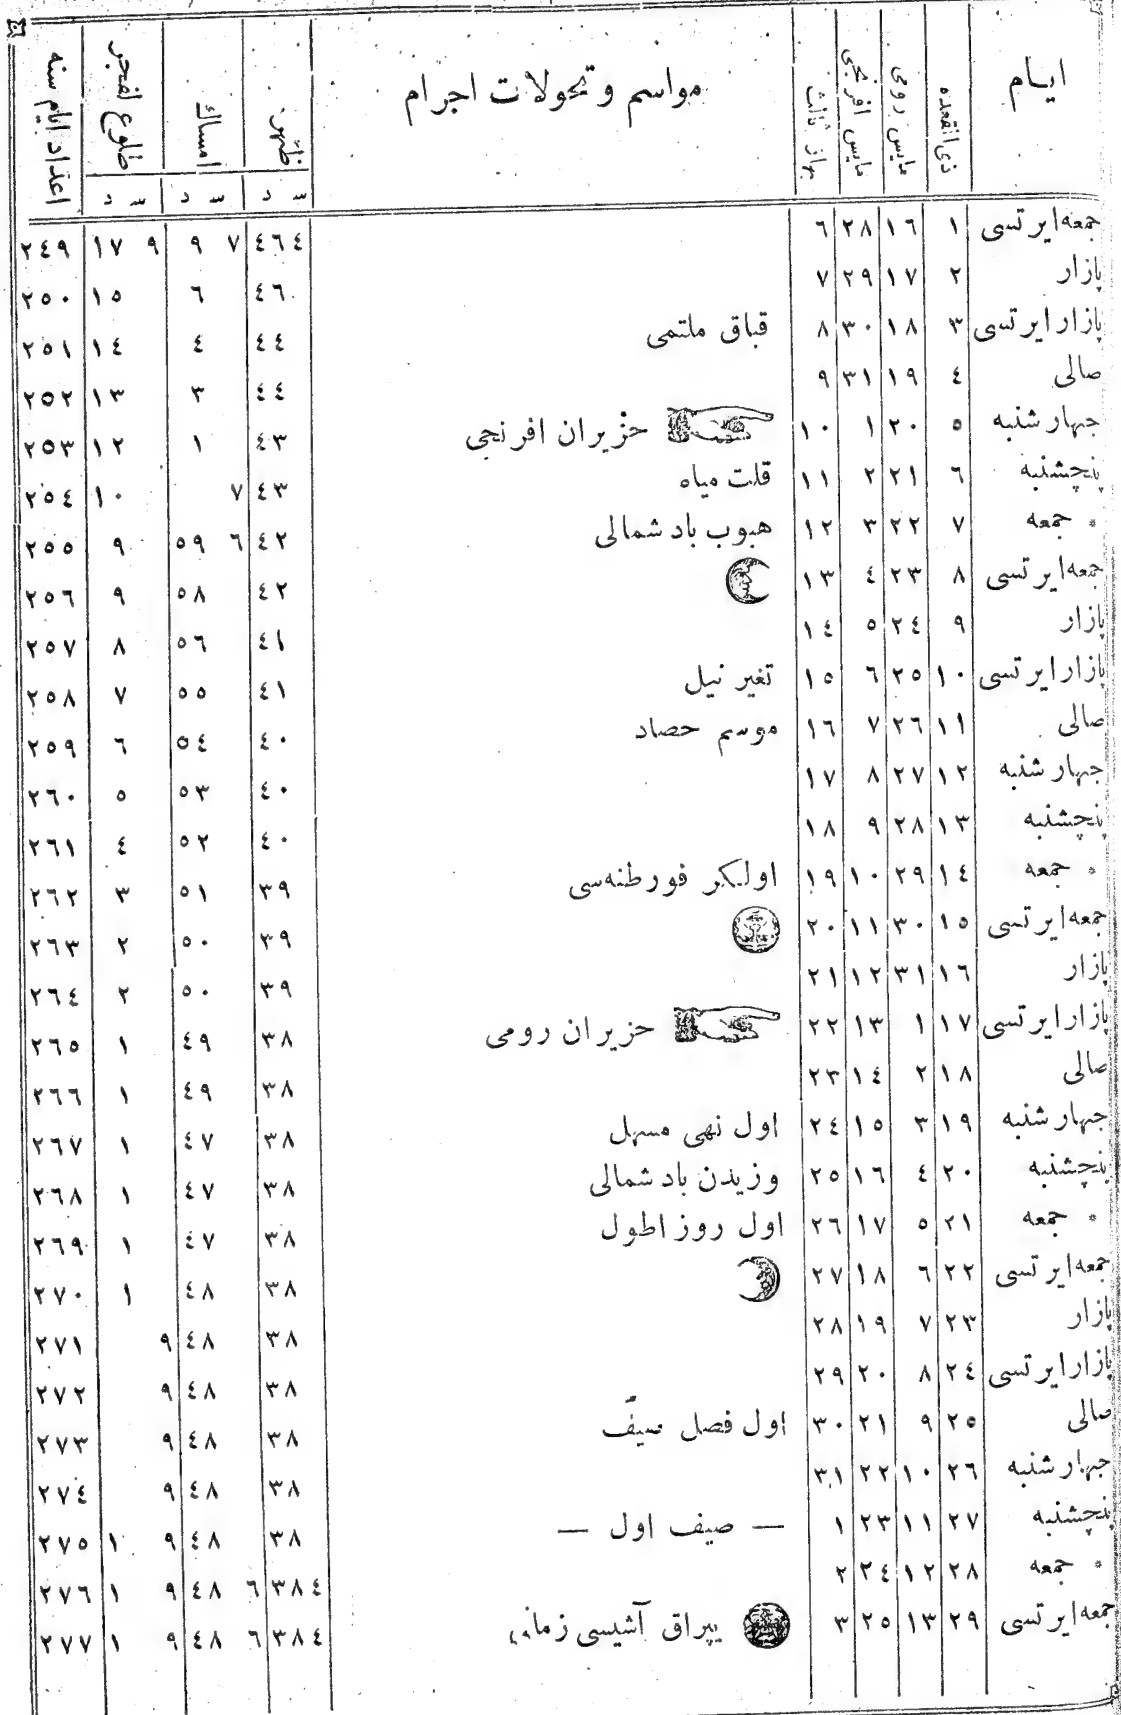 ایام ذی‌القعده مایس رومی مایس افرنجی بهار ثالث مواسم و تحولات اجرام ظهر امساك طلوع الفجر اعداد ایام سنه
س د س د س د
جمعه‌ایرتسی ١ ١٦ ٢٨ ٦ ٤ ٤٦ ٧ ٩ ٩ ١٧ ٢٤٩
پازار ٢ ١٧ ٢٩ ٧ ٤٦ ٦ ١٥ ٢٥٠
پازارایرتسی ٣ ١٨ ٣٠ ٨ قباق ملتمی ٤٤ ٤ ١٤ ٢٥١
صالی ٤ ١٩ ٣١ ٩ ٤٤ ٣ ١٣ ٢٥٢
چهارشنبه ٥ ٢٠ ١ ١٠ حزیران افرنجی ٤٣ ١ ١٢ ٢٥٣
پنچشنبه ٦ ٢١ ٢ ١١ قلت میاه ٤٣ ٧ ١٠ ٢٥٤
* جمعه ٧ ٢٢ ٣ ١٢ هبوب باد شمالی ٤٢ ٦ ٥٩ ٩ ٢٥٥
جمعه‌ایرتسی ٨ ٢٣ ٤ ١٣ ٤٢ ٥٨ ٩ ٢٥٦
پازار ٩ ٢٤ ٥ ١٤ ٤١ ٥٦ ٨ ٢٥٧
پازارایرتسی ١٠ ٢٥ ٦ ١٥ تغیر نیل ٤١ ٥٥ ٧ ٢٥٨
صالی ١١ ٢٦ ٧ ١٦ موسم حصاد ٤٠ ٥٤ ٦ ٢٥٩
چهارشنبه ١٢ ٢٧ ٨ ١٧ ٤٠ ٥٣ ٥ ٢٦٠
پنچشنبه ١٣ ٢٨ ٩ ١٨ ٤٠ ٥٢ ٤ ٢٦١
* جمعه ١٤ ٢٩ ١٠ ١٩ اولکر فورطنه‌سی ٣٩ ٥١ ٣ ٢٦٢
جمعه‌ایرتسی ١٥ ٣٠ ١١ ٢٠ ٣٩ ٥٠ ٢ ٢٦٣
پازار ١٦ ٣١ ١٢ ٢١ ٣٩ ٥٠ ٢ ٢٦٤
پازارایرتسی ١٧ ١ ١٣ ٢٢ حزیران رومی ٣٨ ٤٩ ١ ٢٦٥
صالی ١٨ ٢ ١٤ ٢٣ ٣٨ ٤٩ ١ ٢٦٦
چهارشنبه ١٩ ٣ ١٥ ٢٤ اول نهی مسهل ٣٨ ٤٧ ١ ٢٦٧
پنچشنبه ٢٠ ٤ ١٦ ٢٥ وزیدن باد شمالی ٣٨ ٤٧ ١ ٢٦٨
* جمعه ٢١ ٥ ١٧ ٢٦ اول روز اطول ٣٨ ٤٧ ١ ٢٦٩
جمعه‌ایرتسی ٢٢ ٦ ١٨ ٢٧ ٣٨ ٤٨ ١ ٢٧٠
پازار ٢٣ ٧ ١٩ ٢٨ ٣٨ ٤٨ ٩ ٢٧١
پازارایرتسی ٢٤ ٨ ٢٠ ٢٩ ٣٨ ٤٨ ٩ ٢٧٢
صالی ٢٥ ٩ ٢١ ٣٠ اول فصل صیف ٣٨ ٤٨ ٩ ٢٧٣
چهارشنبه ٢٦ ١٠ ٢٢ ٣١ ٣٨ ٤٨ ٩ ٢٧٤
پنچشنبه ٢٧ ١١ ٢٣ ١ — صیف اول — ٣٨ ٤٨ ٩ ١ ٢٧٥
* جمعه ٢٨ ١٢ ٢٤ ٢ ٤ ٣٨ ٦ ٤٨ ٩ ١ ٢٧٦
جمعه‌ایرتسی ٢٩ ١٣ ٢٥ ٣ یپراق آشیسی زمانی ٤ ٣٨ ٦ ٤٨ ٩ ١ ٢٧٧